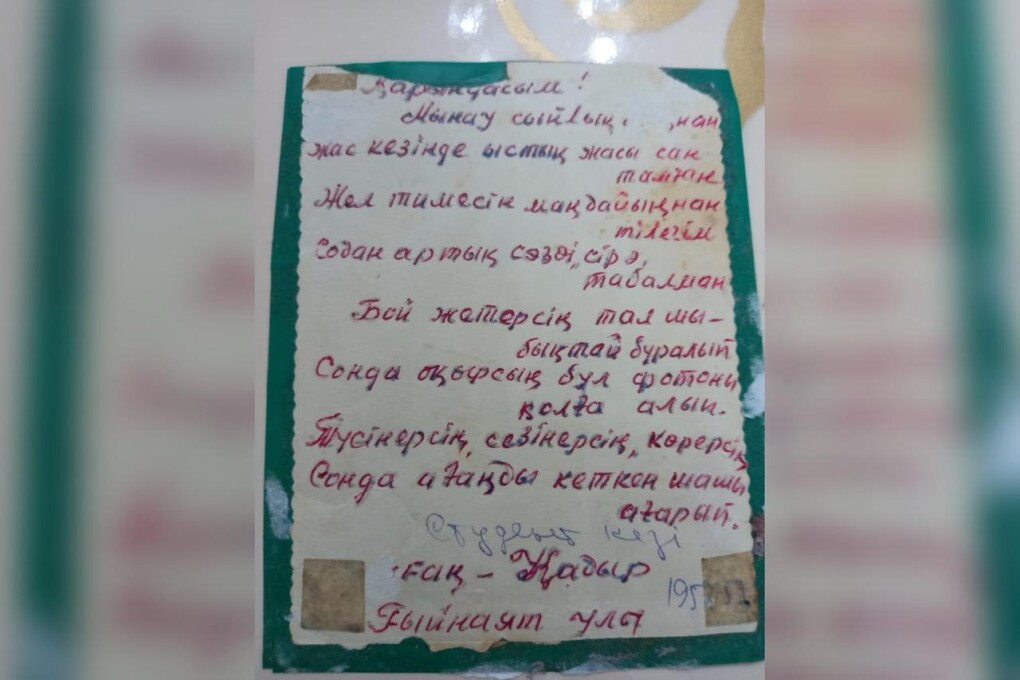 Қарындасым!
Мынау сыйлық . . , нан
жас кезінде ыстық жасы сан
тамған
Жел тимесін маңдайыңнан
тілегім
Содан артық сөзді, сірә,
табалман
Бой жетерсің тал шы-
бықтай бұралып
Сонда оқырсың бұл фотоны
қолға алып.
Түсінерсің, сезінерсің, көрерсің
Сонда ағаңды кеткен шашы
ағарып.
Студент кезі
ғақ - Қадыр
195
Ғыйнаят ұлы